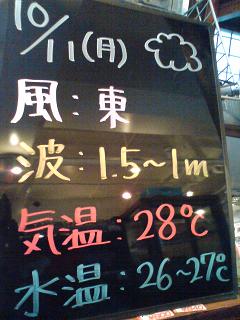 10/11(月)
風:東
波:1.5~1m
気温:28℃
水温:26~27℃